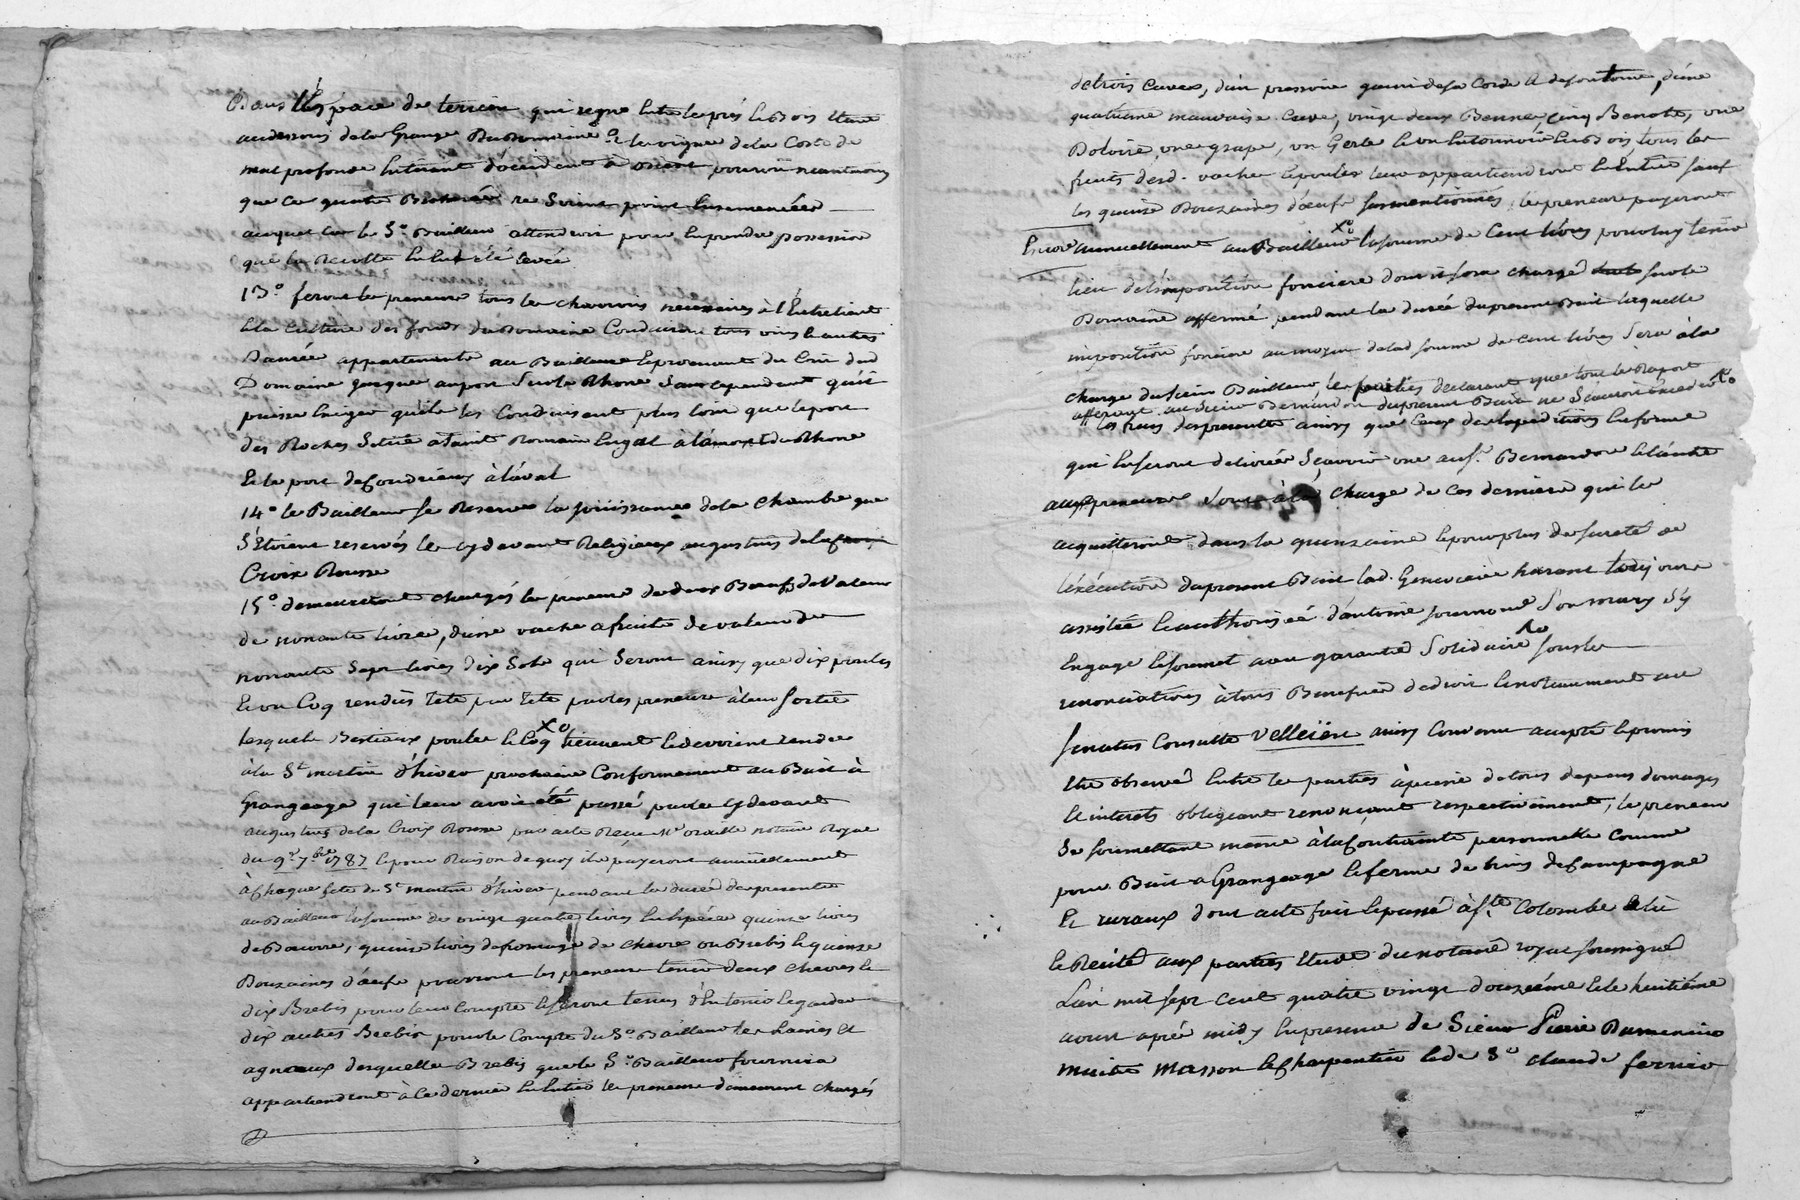 dans l'Espace de terrein qui regne Entre les prés le Bois Etant
au dessous de la Grange du Domaine et la vigne de la Coste de
mal profonde en tirant d'occident à orient, pourvu néantmoins
que ce quatre ne soient point Ensemencées
auquel cas le Sr Bailleur attendra pour En prendre possession
que la Recolte En Eut été Levée
13o feront les preneurs tous les charrois necessaires à l'Entretient
Et la culture des fonds du Domaine Conduiront tous vins Et autres
Danrée appartenants au Bailleur Et provenant du Crû dud
Domaine jusques au port sur le Rhone sans cependant qu'il
puisse Exiger qu'ils les Conduisent plus loin que le port
des Roches Situé a Saint Romain En gal à l'amont du Rhone
Et le port de Condrieux à l'aval
14o le Bailleur se Reserve la jouissance de la Chambre que
S'Etoient reservés les cydevant Religieux augustins de la
Croix Rousse
15o demeureront chargés les preneurs de deux Bœufs de valeur
de nonante livres, d'une vache a fruits de valeur de
nonante Sept livres dix Sols qui Seront ainsy que dix poules
Et un Coq rendus tete par tete par les preneurs à leur Sortie
lesquels Bestiaux poules Et Coq xo tiennent Et devoient rendre
à la St martin d'hiver prochaine Conformement au Bail à
Grangeage qui leur avoit été passé par les cydevant
augustins de la Croix Rousse par acte Reçu Me notaire Royal
du 9e 7bre 1787 Et pour Raison de quoy ils payeront annuellement
à Chaque fete de St martin d'hiver pendant la durée des presentes
au Bailleur la somme de vingt quatre livres En Espèce quinze livres
de Beurre, quinze livres de fromage de chevre ou Brebis Et quinze
Douzaines d'œufs pourront les preneurs tenir deux chevres Et
dix Brebis pour leur Compte Et seront tenus d'Entretenir Et garder
dix autres Brebis pour le Compte du Sr Bailleur les Laines Et
agneaux desquelles Brebis que le Sr Bailleur fournira
appartiendront à ce dernier En Entier les preneurs demeurent chargés
de trois Cuves, d'un pressoir garni de sa Corde Et de son tour, d'une
quatrieme mauvaise Cuve, vingt deux Bennes Cinq Benots, une
Doloire, une grape, un Gerle Et un Entonnoir En Bois tous les
fruits desd. vaches Et poules leur appartiendront En Entier sauf
les quinze Douzaines d'œufs susmentionnés, les preneurs payeront
Encore annuellement au Bailleur xo la somme de Cent livres pour luy tenir
lieu de l'imposition fonciere dont il sera chargé sur le
Domaine affermé, pendant la durée du present Bail laquelle
imposition fonciere au moyen de lad somme de cent livres sera à la
charge dud Sieur Bailleur, les parties declarant que tout le Raport
afferant au Sieur Bernardon du present Bail ne Sauroit Exceder
les frais des presentes ainsy que Ceux des Expeditions En forme
qui En seront delivrées Sçavoir une au Sr. Bernardon Et l'autre
aux preneurs Sont à la charge de Ces derniers qui les
acquitteront dans la quinzaine Et pour plus de sureté de
l'éxécution du present Bail lad. Genevieve
assistée Et authorisée d'antoine fournon Son mary S'y
Engage Et soumet avec garantie Solidaire sous les
renonciations à tous Benefices de droit Et notamment au
Senatus Consulte Velleïen ainsy Convenu accepté Et promis
Etre observé Entre les parties à peine de tous depens domages
Et interets obligeant renonçant respectivement, les preneurs
Se soumettant même à la Contrainte personnelle comme
pour Bail a Grangeage Et ferme de biens de Campagne
Et ruraux dont acte fait Et passé à Ste Colombe Et lû
Et Recité aux parties Etude du notaire royal soussigné
L'an mil sept cent quatre vingt douzième Et le huitième
aoust après midy En presence de Sieur Pierre Dumenieux
maitre masson Et Charpentier Et de Sr claude ferrier